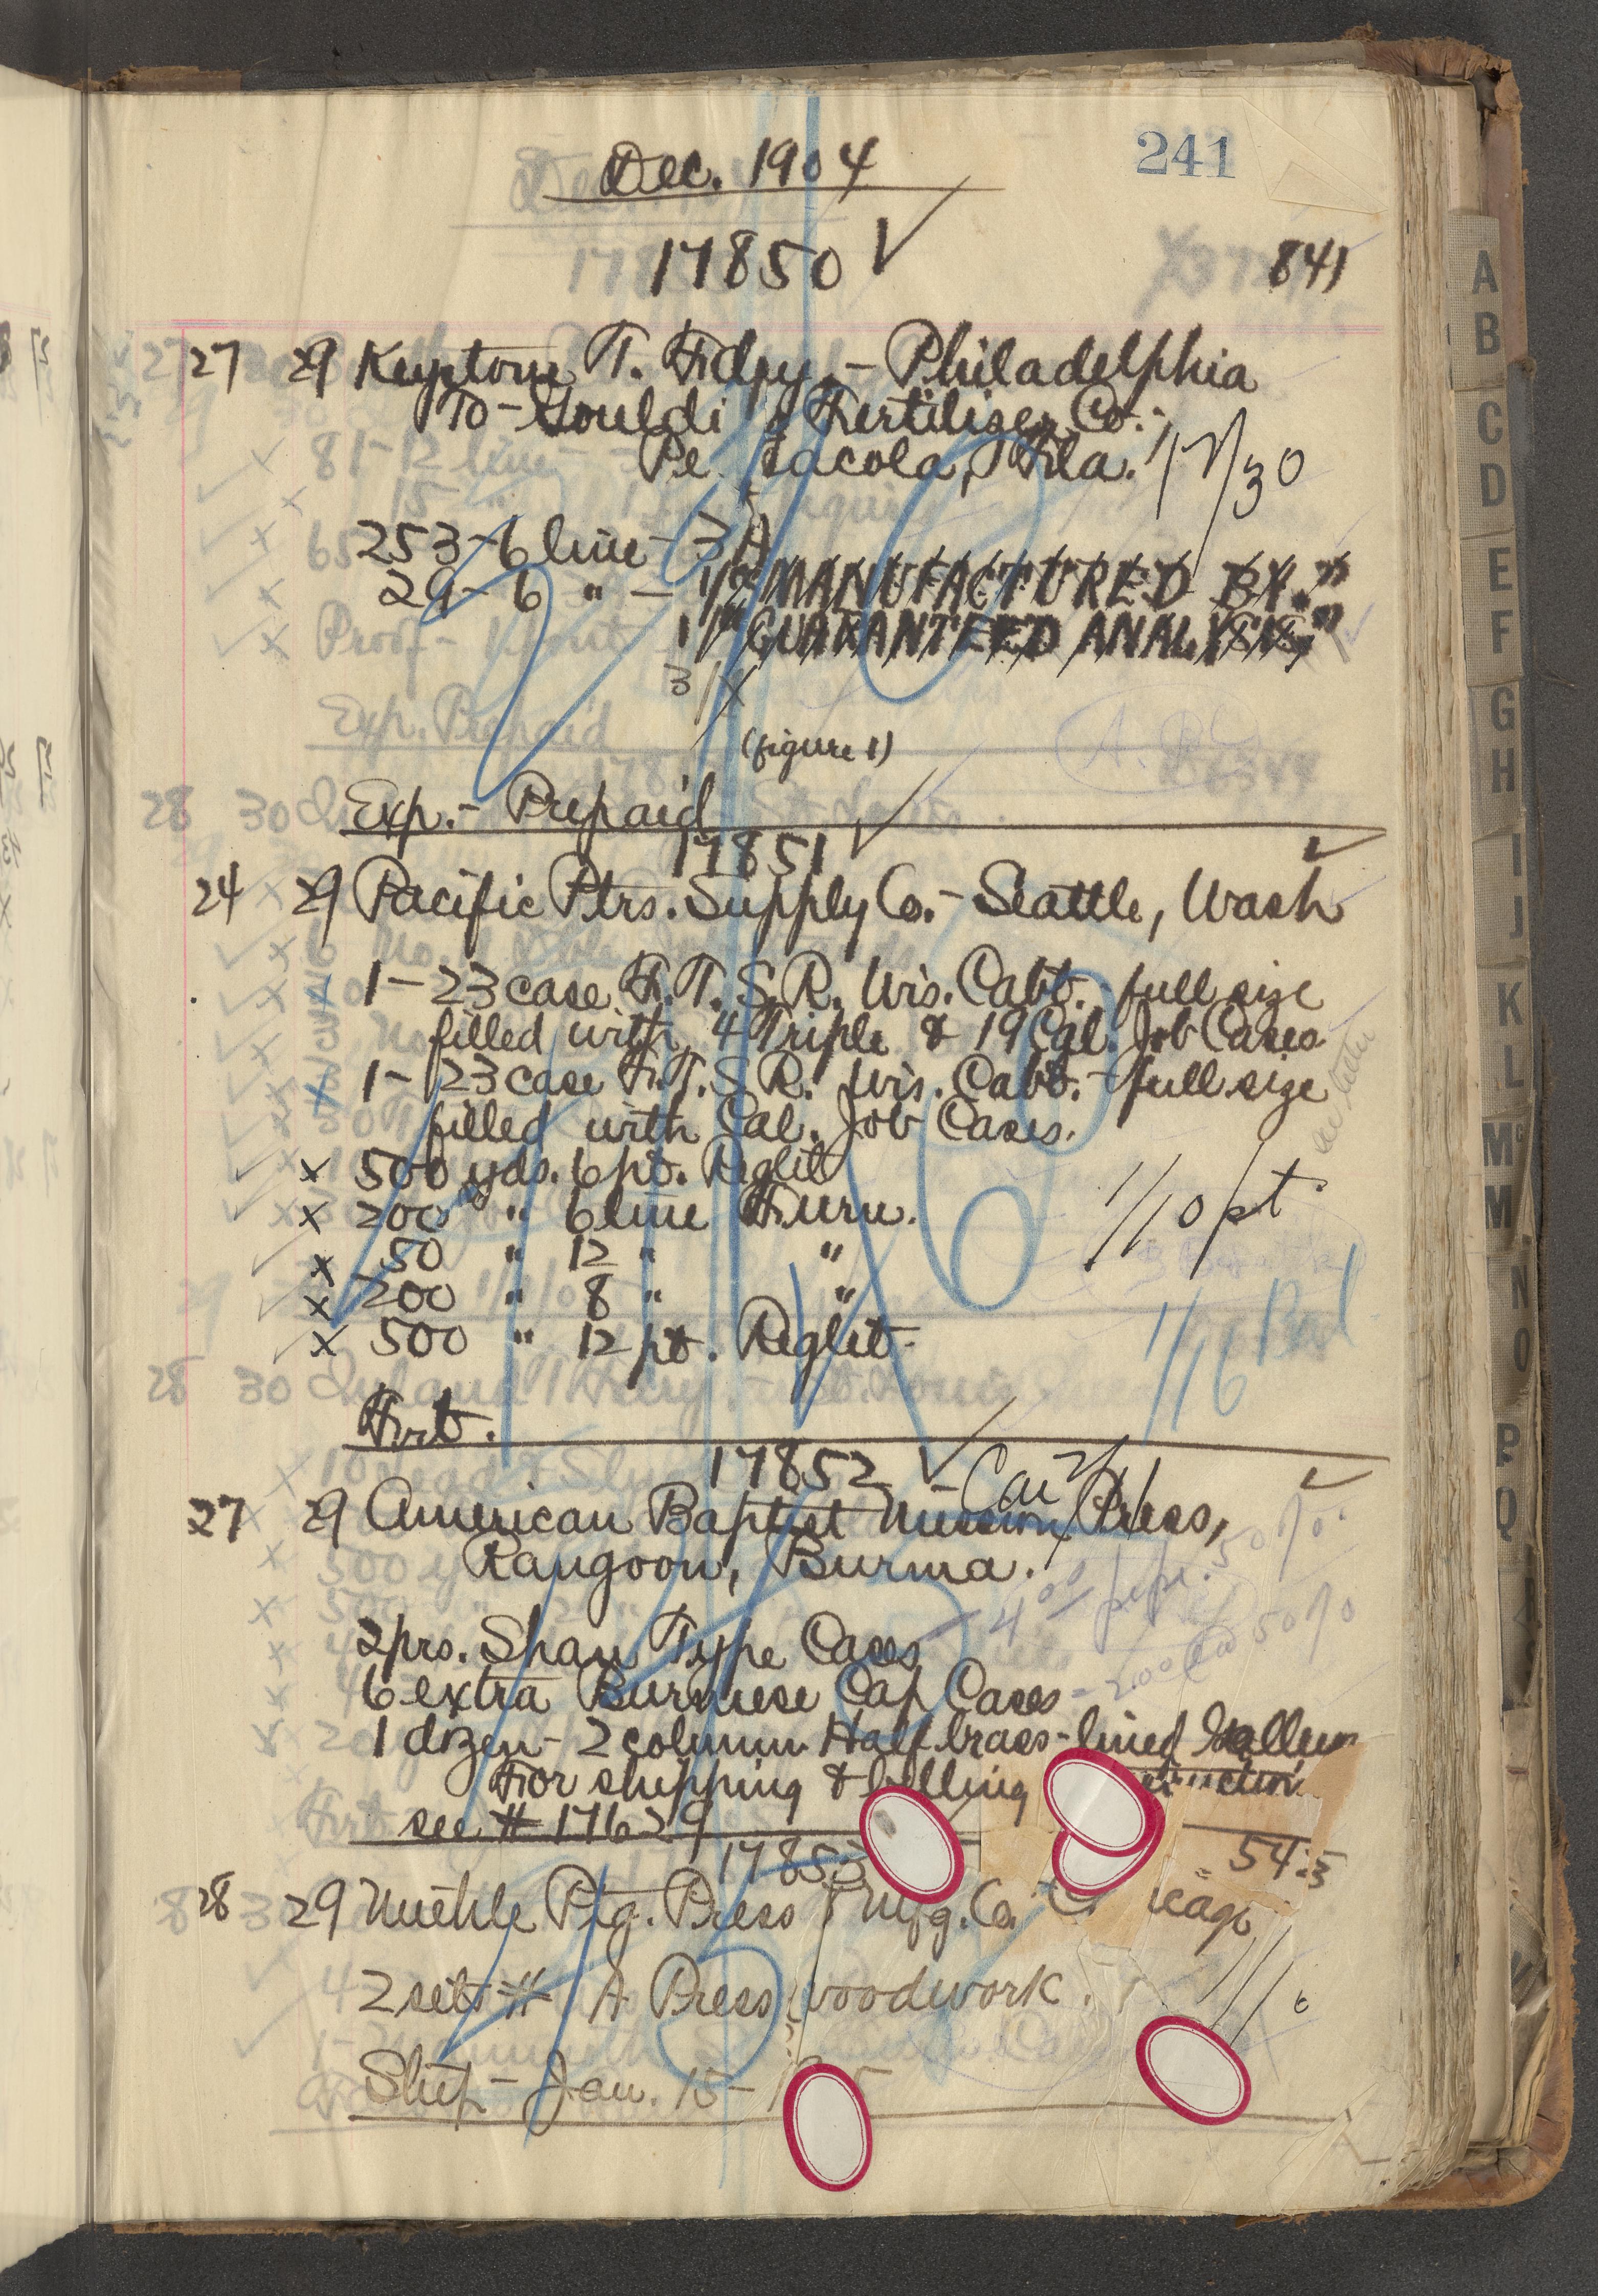 241
Dec. 1904
17850 ✓
841
27 29 Keystone T. Fdry. - Philadelphia
To - Gouldi g Fertiliser Co.,
Pe acola, Fla. 12/30
253 - 6 line - 3 A
29 - 6 " - 1/"MANUFACTURED BY."
1/"GUARANTEED ANALYSIS,"
3/X
(figure 1)
Exp. - Prepaid
17851 ✓
24 29 Pacific Ptrs. Supply Co. - Seattle, Wash
1 - 23 case F.T.S.R. Wis. Cabt. - full size
filled with 4 Triple & 19 Cal. Job Cases
x 1 - 23 case F.T.S.R. Wis. Cabt. - full size
filled with Cal. Job Cases.
x 500 yds. 6 pt. Reglet
x 200 " 6 line Furn. 1/10 pt.
x 50 " 12 " "
x 200 " 8 " "
x 500 " 12 pt. Reglet 1/16 Bal
Frt.
17852 ✓
27 29 American Baptist Mission Press,
Rangoon, Burma.
2 prs. Shan Type Cases - 4.00 pr. 50%
6 extra Burmese Cap Cases - 2.00 50%
1 dozen - 2 column Half brass-lined Galleys
For shipping & billing
see # 17629
17853
54.5
28 29 Miehle Ptg. Press & Mfg. Co. C icago
2 sets # A Press woodwork. 1/16
Ship - Jan. 15 - 1 5
A
B
C
D
E
F
G
H
I
J
K
L
M
M
N
O
P
Q